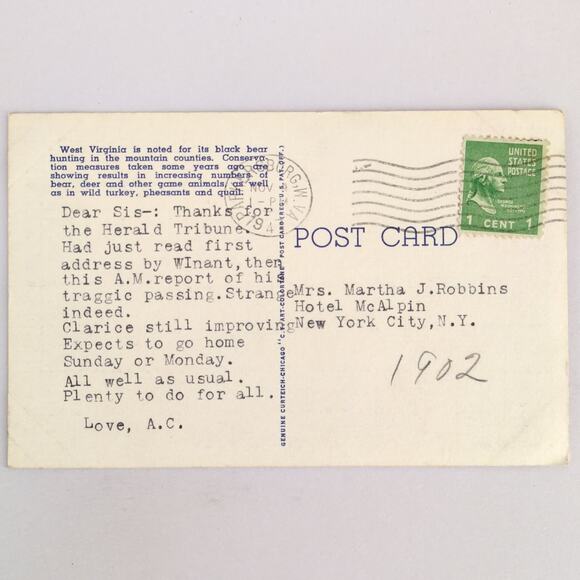 West Virginia is noted for its black bear
hunting in the mountain counties. Conserva-
tion measures taken some years ago are
showing results in increasing numbers of
bear, deer and other game animals, as well
as in wild turkey, pheasants and quail.
Dear Sis-: Thanks for
the Herald Tribune.
Had just read first
address by WInant,then
this A.M.report of his
traggic passing.Strange
indeed.
Clarice still improving
Expects to go home
Sunday or Monday.
All well as usual.
Plenty to do for all.
Love, A.C.
GENUINE CURTEICH-CHICAGO "C.T. ART-COLORTONE" POST CARD (REG. U.S. PAT. OFF.)
NOV
W.VA.
UNITED
STATES
POSTAGE
1 CENT 1
POST CARD
Mrs. Martha J.Robbins
Hotel McAlpin
New York City,N.Y.
1902